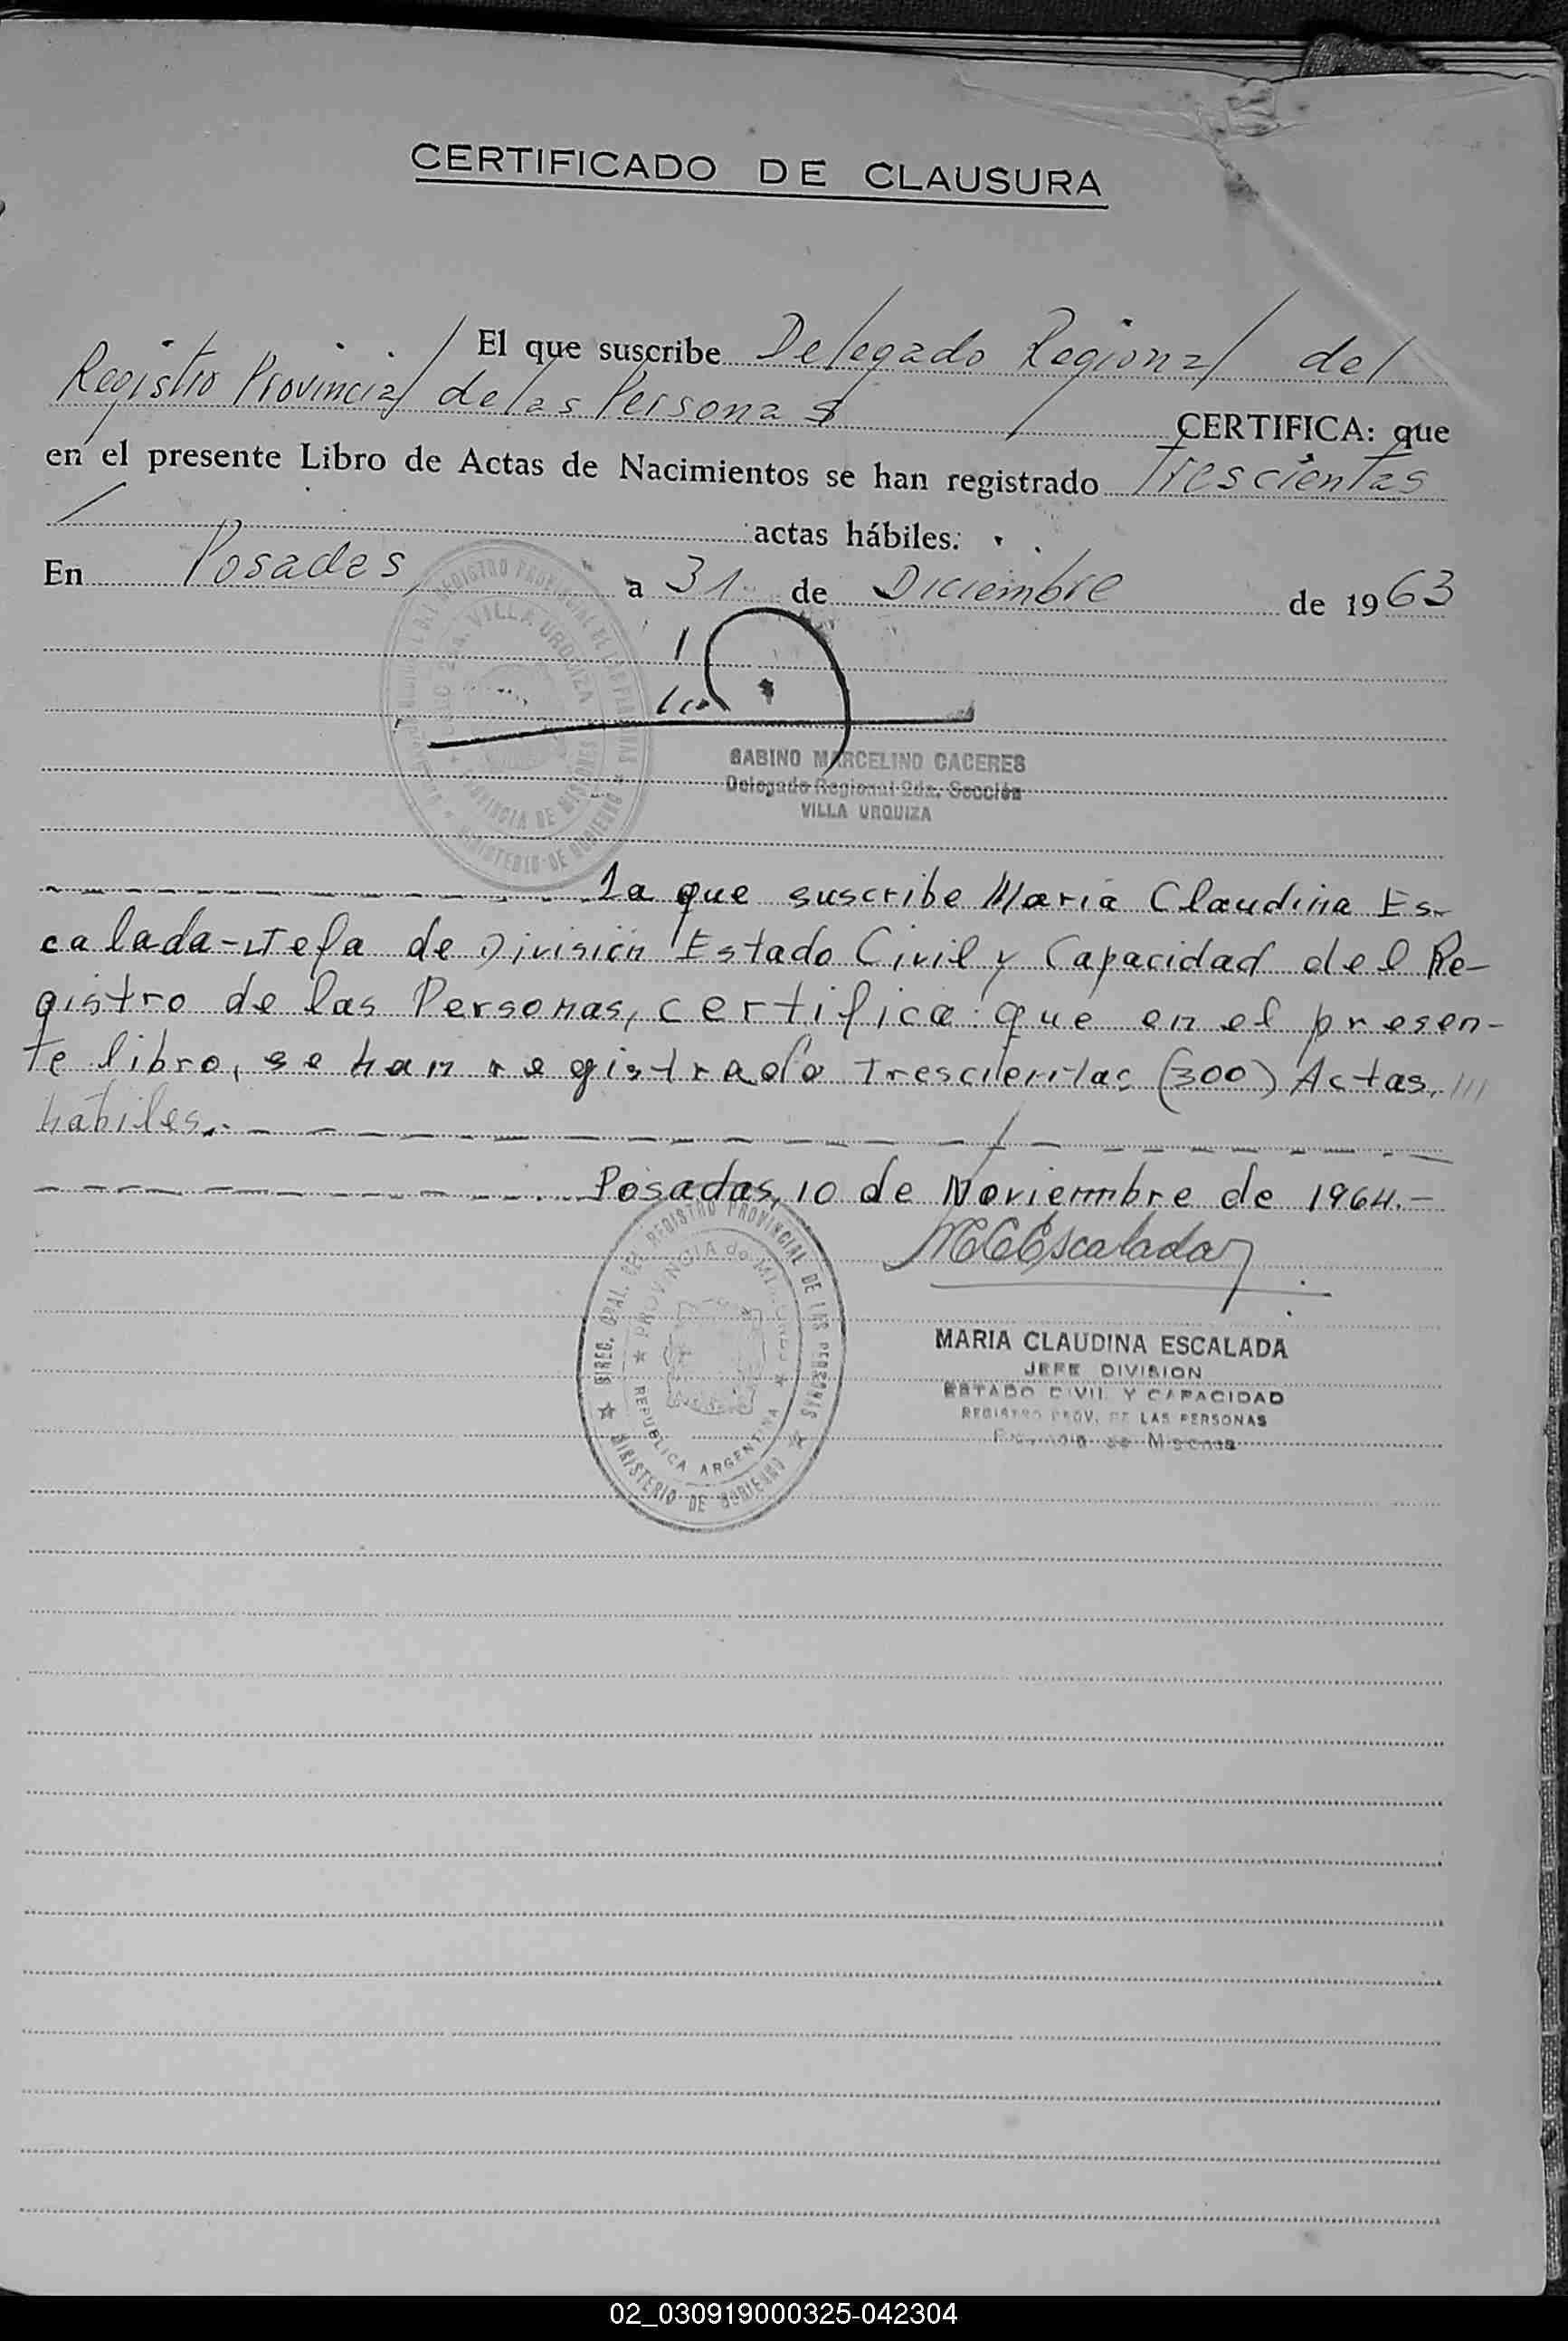 CERTIFICADO DE CLAUSURA
El que suscribe Delegado Regional del
Registro Provincial de las Personas
CERTIFICA: que
en el presente Libro de Actas de Nacimientos se han registrado Trescientas
actas hábiles.
En Posadas, a 31 de Diciembre de 1963
DEL REGISTRO PROVINCIAL DE LAS PERSONAS
VILLA URQUIZA
PROVINCIA DE MISIONES
MINISTERIO DE GOBIERNO
SABINO MARCELINO CACERES
Delegado Regional 2da. Sección
VILLA URQUIZA
La que suscribe Maria Claudina Es-
calada-Jefa de División Estado Civil y Capacidad del Re-
gistro de las Personas, certifica: que en el presen-
te libro, se han registrado Trescientas (300) Actas, ///
hábiles.-
Posadas, 10 de Noviembre de 1964.-
MCEscalada
DIREC. GRAL. DEL REGISTRO PROVINCIAL DE LAS PERSONAS
PROVINCIA de MISIONES
REPUBLICA ARGENTINA
MINISTERIO DE GOBIERNO
MARIA CLAUDINA ESCALADA
JEFE DIVISION
ESTADO CIVIL Y CAPACIDAD
REGISTRO PROV. DE LAS PERSONAS
Provincia de Misiones
02_030919000325-042304